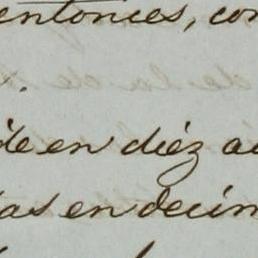 entonces, con
.
ide en diéz a
das en decim